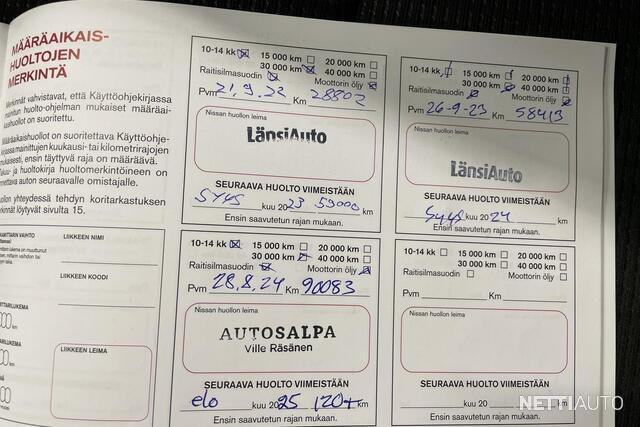 MÄÄRÄAIKAIS-
HUOLTOJEN
MERKINTÄ
Merkinnät vahvistavat, että Käyttöohjekirjassa
mainitun huolto-ohjelman mukaiset määräai-
kaishuollot on suoritettu.
Määräaikaishuollot on suoritettava Käyttöohje-
kirjassa mainittujen kuukausi- tai kilometrirajojen
mukaisesti, ensin täyttyvä raja on määräävä.
Takuu- ja huoltokirja huoltomerkintöineen on
annettava auton seuraavalle omistajalle.
huollon yhteydessä tehdyn koritarkastuksen
merkinnät löytyvät sivulta 15.
LIIKKEEN NIMI
LIIKKEEN KOODI
LIIKKEEN LEIMA
10-14 kk 15 000 km 20 000 km
30 000 km 40 000 km
Raitisilmasuodin Moottorin öljy
Pvm 21.9.22 Km 28802
Nissan huollon leima
LänsiAuto
SEURAAVA HUOLTO VIIMEISTÄÄN
SYYS kuu 2023 59000 km
Ensin saavutetun rajan mukaan.
10-14 kk 15 000 km 20 000 km
30 000 km 40 000 km
Raitisilmasuodin Moottorin öljy
Pvm 26-9-23 Km 58413
Nissan huollon leima
LänsiAuto
SEURAAVA HUOLTO VIIMEISTÄÄN
Syys kuu 2024 km
Ensin saavutetun rajan mukaan.
10-14 kk 15 000 km 20 000 km
30 000 km 40 000 km
Raitisilmasuodin Moottorin öljy
Pvm 28.8.24 Km 90083
Nissan huollon leima
AUTOSALPA
Ville Räsänen
SEURAAVA HUOLTO VIIMEISTÄÄN
elo kuu 2025 120t km
Ensin saavutetun rajan mukaan.
10-14 kk 15 000 km 20 000 km
30 000 km 40 000 km
Raitisilmasuodin Moottorin öljy
Pvm Km
Nissan huollon leima
SEURAAVA HUOLTO VIIMEISTÄÄN
kuu 20 km
Ensin saavutetun rajan mukaan.
NETTIAUTO